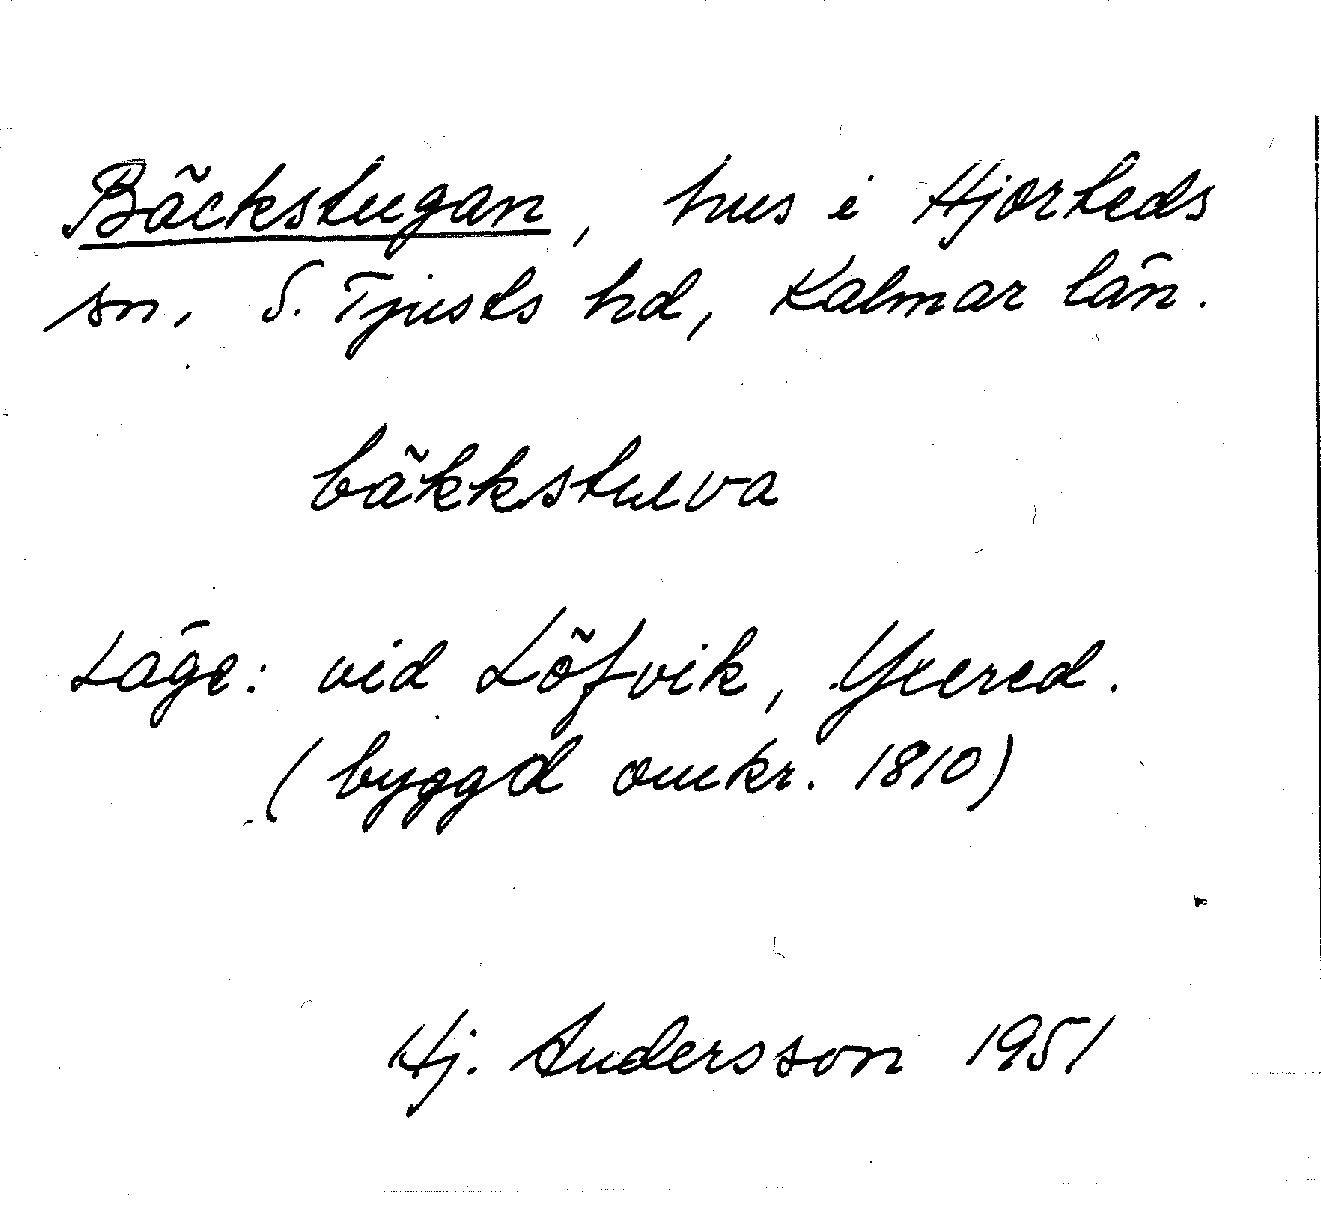 Bäckstugan, hus i Hjorteds
sn, S. Tjusts hd, Kalmar län.
bäkkstuva
Läge: vid Löfvik, Ytered.
(byggd omkr. 1810)
Hj. Andersson 1951